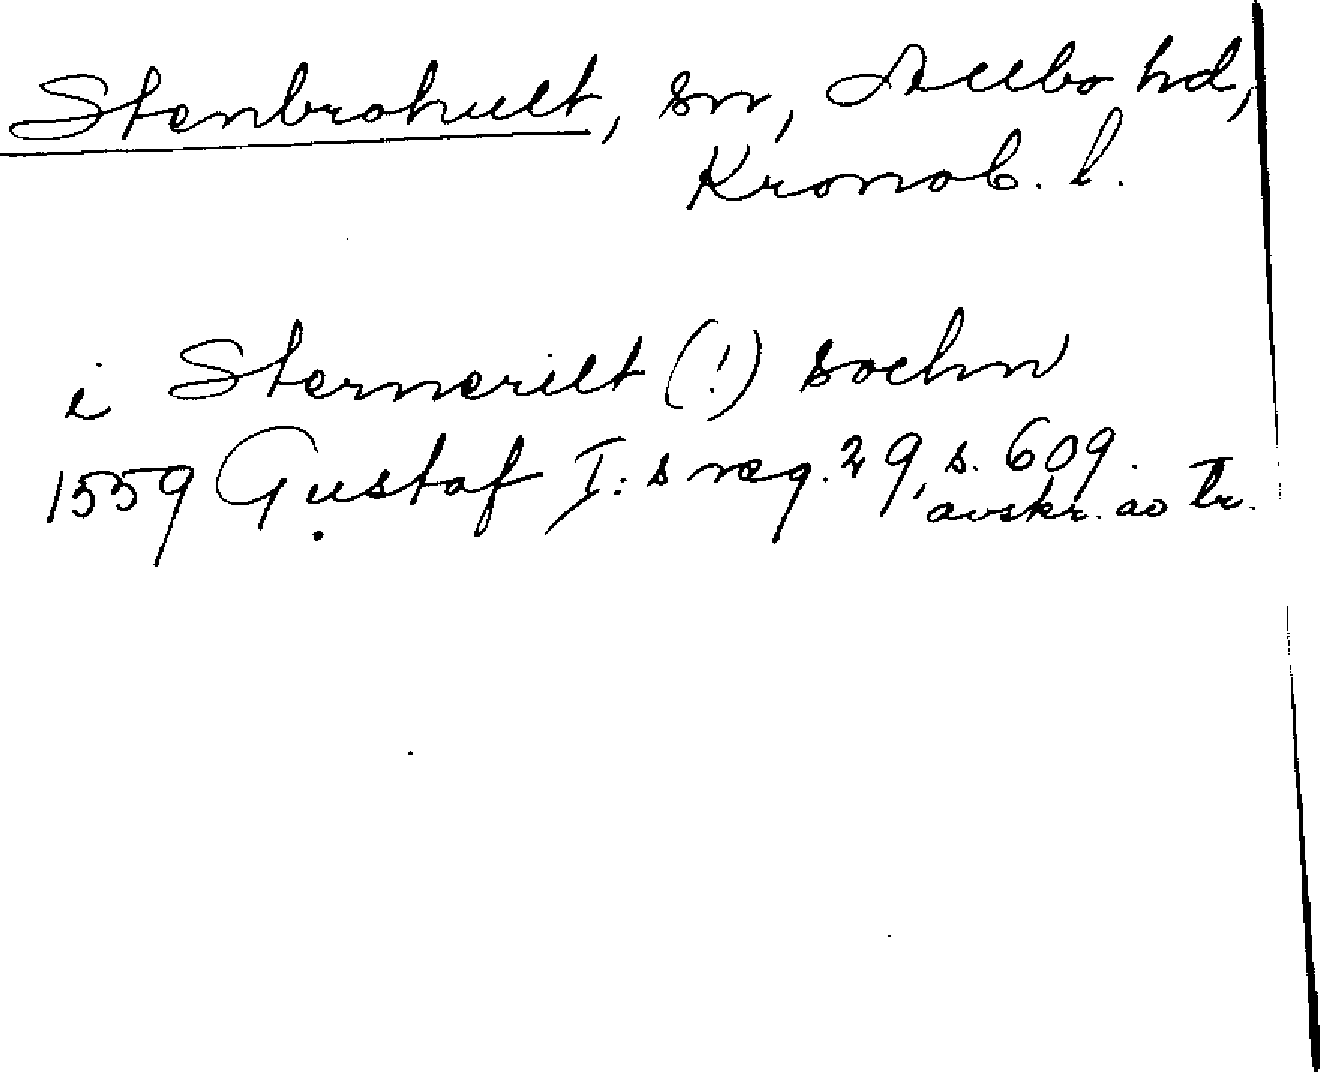 Stenbrohult, sn, Allbo hd,
Kronob. l.
i Sternerilt (!) sochn
1559 Gustaf I:s reg. 29, s. 609.
avskr. ao tr.